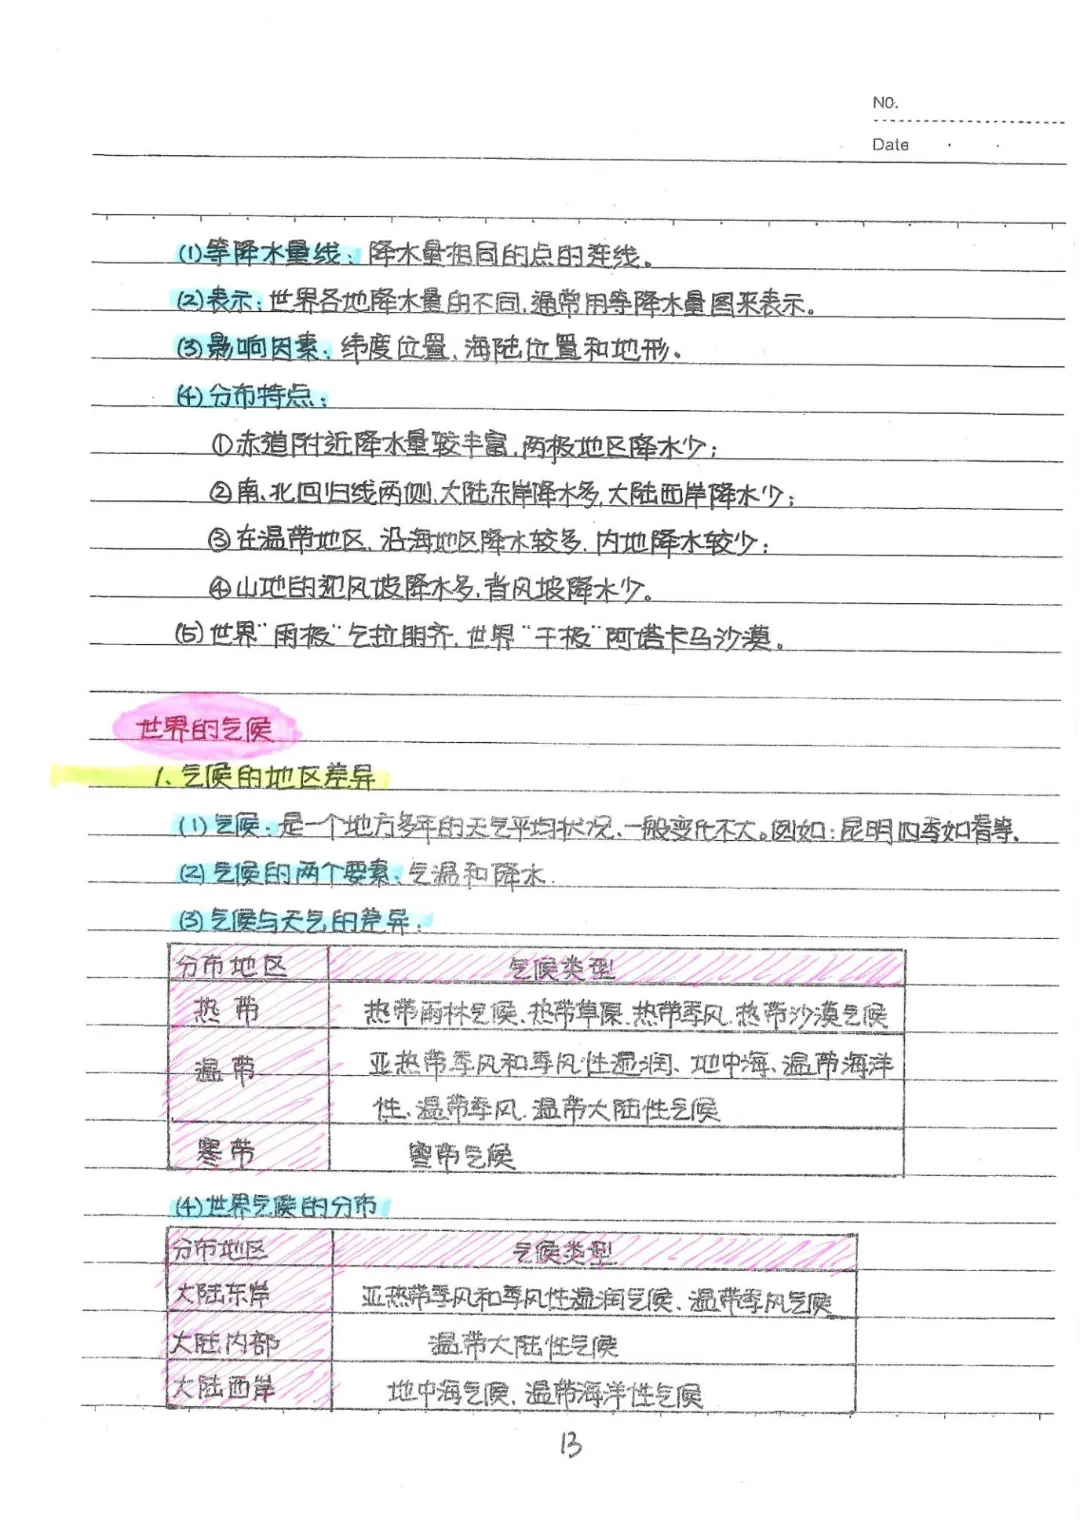 NO.
Date
(1)等降水量线：降水量相同的点的连线。
(2)表示：世界各地降水量的不同，通常用等降水量图来表示。
(3)影响因素：纬度位置、海陆位置和地形。
(4)分布特点：
①赤道附近降水量较丰富，两极地区降水少；
②南、北回归线两侧，大陆东岸降水多，大陆西岸降水少；
③在温带地区，沿海地区降水较多，内地降水较少；
④山地的迎风坡降水多，背风坡降水少。
(5)世界“雨极”乞拉朋齐，世界“干极”阿塔卡马沙漠。
世界的气候
1、气候的地区差异
(1)气候：是一个地方多年的天气平均状况，一般变化不大。例如：昆明四季如春等、
(2)气候的两个要素、气温和降水.
(3)气候与天气的差异：
分布地区 气候类型
热带 热带雨林气候、热带草原、热带季风、热带沙漠气候
温带 亚热带季风和季风性湿润、地中海、温带海洋
性、温带季风、温带大陆性气候
寒带 寒带气候
(4)世界气候的分布
分布地区 气候类型
大陆东岸 亚热带季风和季风性湿润气候、温带季风气候
大陆内部 温带大陆性气候
大陆西岸 地中海气候、温带海洋性气候
13